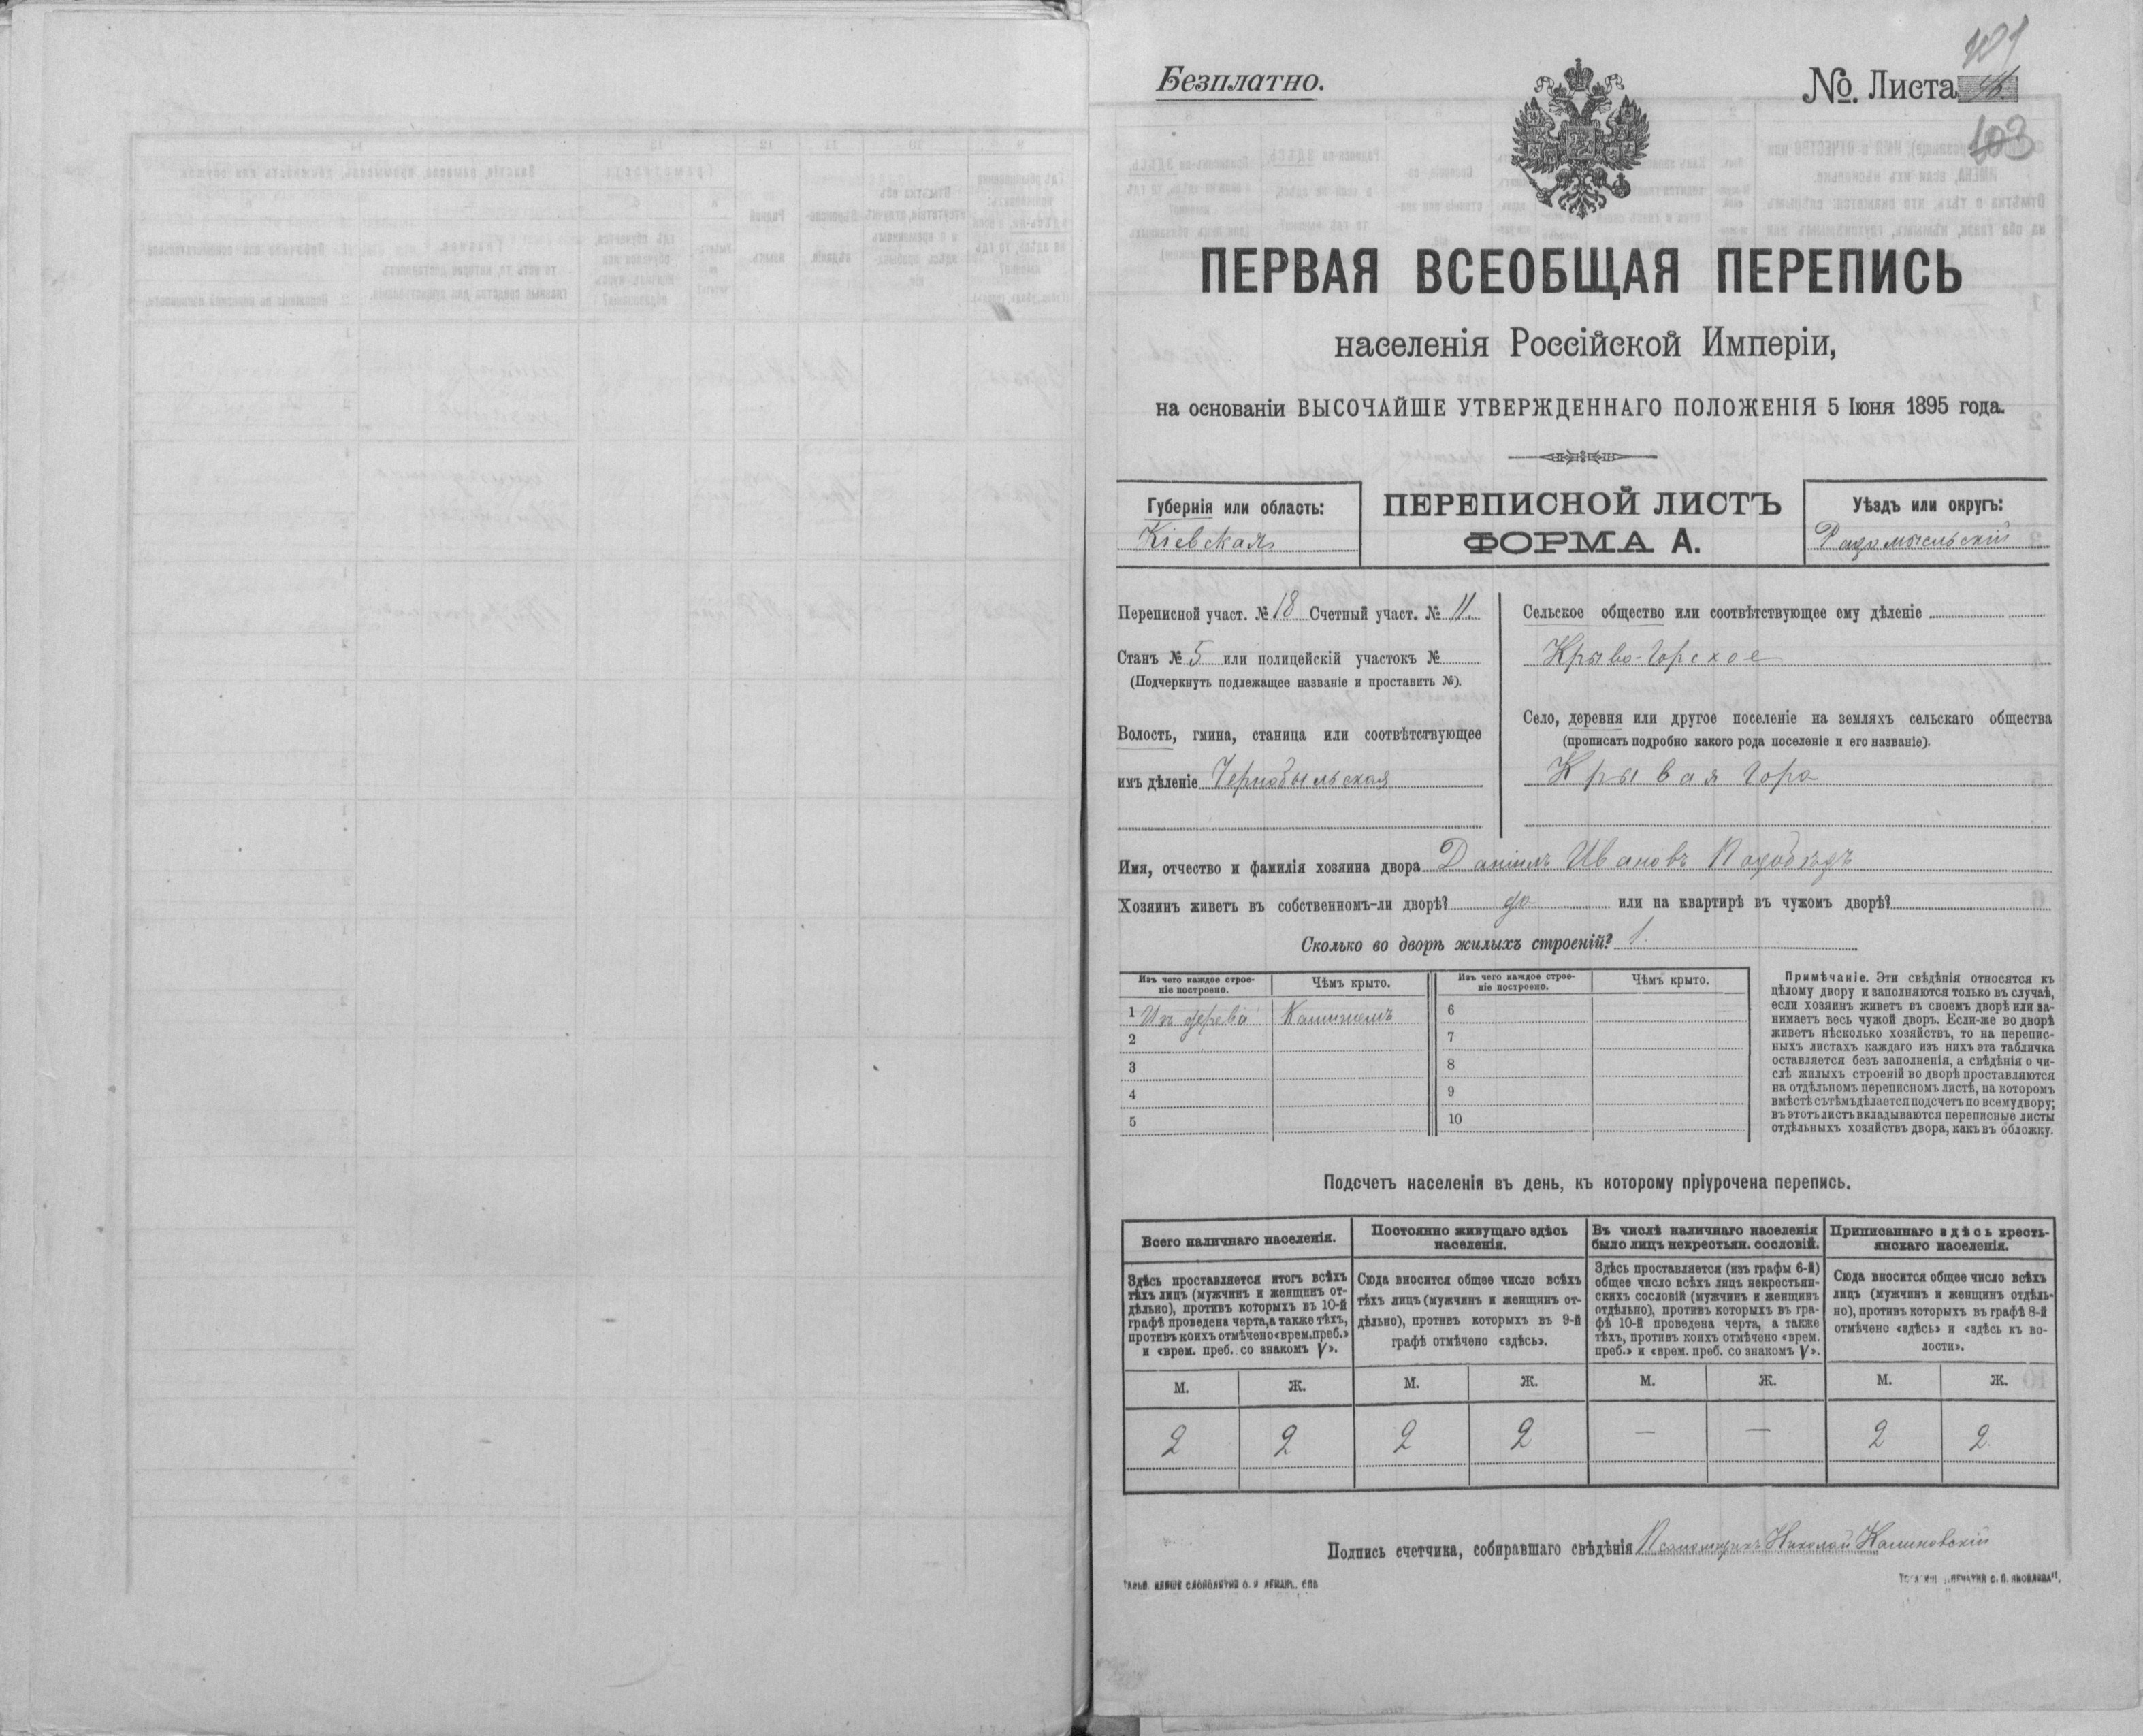 Безплатно.
№. Листа
103
ПЕРВАЯ ВСЕОБЩАЯ ПЕРЕПИСЬ
населенія Россійской Имперіи,
на основаніи ВЫСОЧАЙШЕ УТВЕРЖДЕННАГО ПОЛОЖЕНІЯ 5 Іюня 1895 года.
Губернія или область:
Кіевская
ПЕРЕПИСНОЙ ЛИСТЪ
ФОРМА А.
Уѣздъ или округъ:
Радомысльскій
Переписной участ. № 18 Счетный участ. № 11.
Станъ № 5 или полицейскій участокъ №
(Подчеркнуть подлежащее названіе и проставить №).
Волость, гмина, станица или соотвѣтствующее
имъ дѣленіе Чернобыльская
Сельское общество или соотвѣтствующее ему дѣленіе
Крыво-Горское
Село, деревня или другое поселеніе на земляхъ сельскаго общества
(прописать подробно какого рода поселеніе и его названіе).
Крывая Гора
Имя, отчество и фамилія хозяина двора Даніилъ Ивановъ
Хозяинъ живетъ въ собственномъ-ли дворѣ? да или на квартирѣ въ чужомъ дворѣ?
Сколько во дворѣ жилыхъ строеній? 1.
Изъ чего каждое строе-
ніе построено.
Чѣмъ крыто.
Изъ чего каждое строе-
ніе построено.
Чѣмъ крыто.
1 Изъ дерева Камышемъ
2
3
4
5
6
7
8
9
10
Примѣчаніе. Эти свѣдѣнія относятся къ
цѣлому двору и заполняются только въ случаѣ,
если хозяинъ живетъ въ своемъ дворѣ или за-
нимаетъ весь чужой дворъ. Если-же во дворѣ
живетъ нѣсколько хозяйствъ, то на перепис-
ныхъ листахъ каждаго изъ нихъ эта табличка
оставляется безъ заполненія, а свѣдѣнія о чи-
слѣ жилыхъ строеній во дворѣ проставляются
на отдѣльномъ переписномъ листѣ, на которомъ
вмѣстѣ съ тѣмъ дѣлается подсчетъ по всему двору;
въ этотъ листъ вкладываются переписные листы
отдѣльныхъ хозяйствъ двора, какъ въ обложку.
Подсчетъ населенія въ день, къ которому пріурочена перепись.
Всего наличнаго населенія.
Здѣсь проставляется итогъ всѣхъ
тѣхъ лицъ (мужчинъ и женщинъ от-
дѣльно), противъ которыхъ въ 10-й
графѣ проведена черта, а также тѣхъ,
противъ коихъ отмѣчено «врем. преб.»
и «врем. преб. со знакомъ V».
Постоянно живущаго здѣсь
населенія.
Сюда вносится общее число всѣхъ
тѣхъ лицъ (мужчинъ и женщинъ от-
дѣльно), противъ которыхъ въ 9-й
графѣ отмѣчено «здѣсь».
Въ числѣ наличнаго населенія
было лицъ некрестьян. сословій.
Здѣсь проставляется (изъ графы 6-й)
общее число всѣхъ лицъ некрестьян-
скихъ сословій (мужчинъ и женщинъ
отдѣльно), противъ которыхъ въ гра-
фѣ 10-й проведена черта, а также
тѣхъ, противъ коихъ отмѣчено «врем.
преб.» и «врем. преб. со знакомъ V».
Приписаннаго здѣсь кресть-
янскаго населенія.
Сюда вносится общее число всѣхъ
лицъ (мужчинъ и женщинъ отдѣль-
но), противъ которыхъ въ графѣ 8-й
отмѣчено «здѣсь» и «здѣсь къ во-
лости».
М. Ж. М. Ж. М. Ж. М. Ж.
2 2 2 2 — — 2 2
Подпись счетчика, собиравшаго свѣдѣнія Псаломщикъ Николай Калиновскій